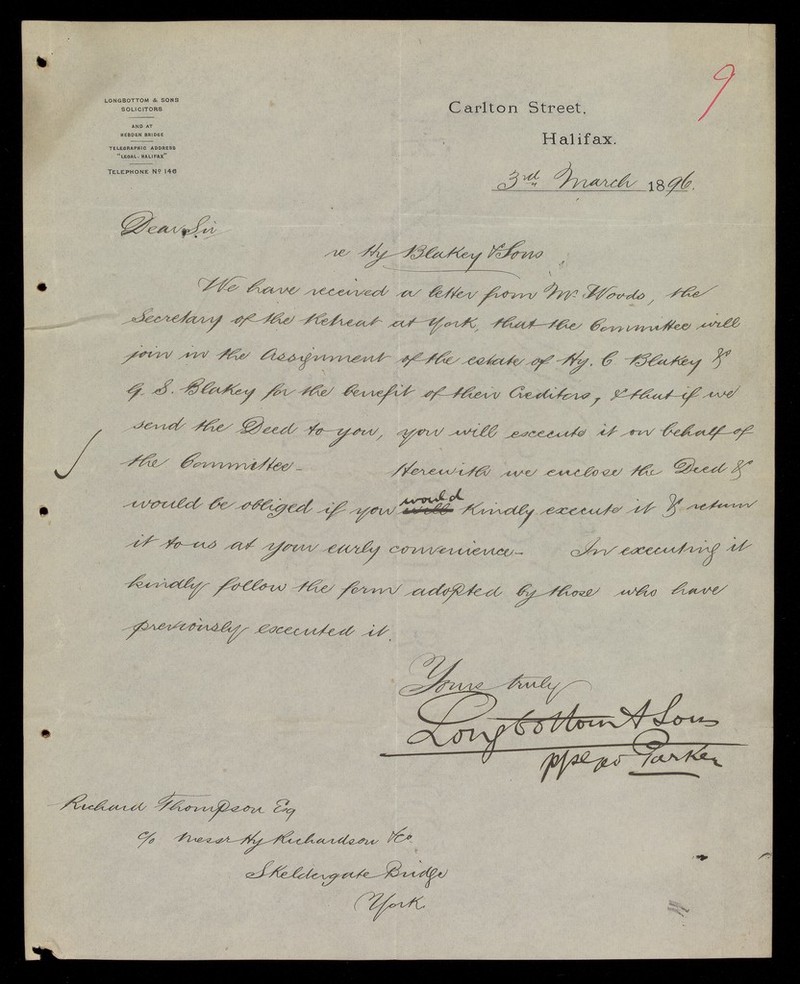 LONGBOTTOM & SONS
SOLICITORS
AND AT
HEBDEN BRIDGE
TELEGRAPHIC ADDRESS
"LEGAL, HALIFAX"
TELEPHONE No 146
9
Carlton Street,
Halifax.
3rd March 1896.
Dear Sir
re Hy Blakey & Sons
We have received a letter from Mr. Woods, the
Secretary of the Retreat at York, that the Committee will
join in the Assignment of the estate of Hy. C Blakey &
G. S. Blakey for the benefit of their Creditors, & that if we
send the Deed to you, you will execute it on behalf of
the Committee – Herewith we enclose the Deed &
would be obliged if you will would kindly execute it & return
it to us at your early convenience – In executing it
kindly follow the form adopted by those who have
previously executed it.
Yours truly
Longbottom & Sons
Parker
Richard Thompson Esq
c/o Messr Hy Richardson & Co.
Skeldergate Bridge
York